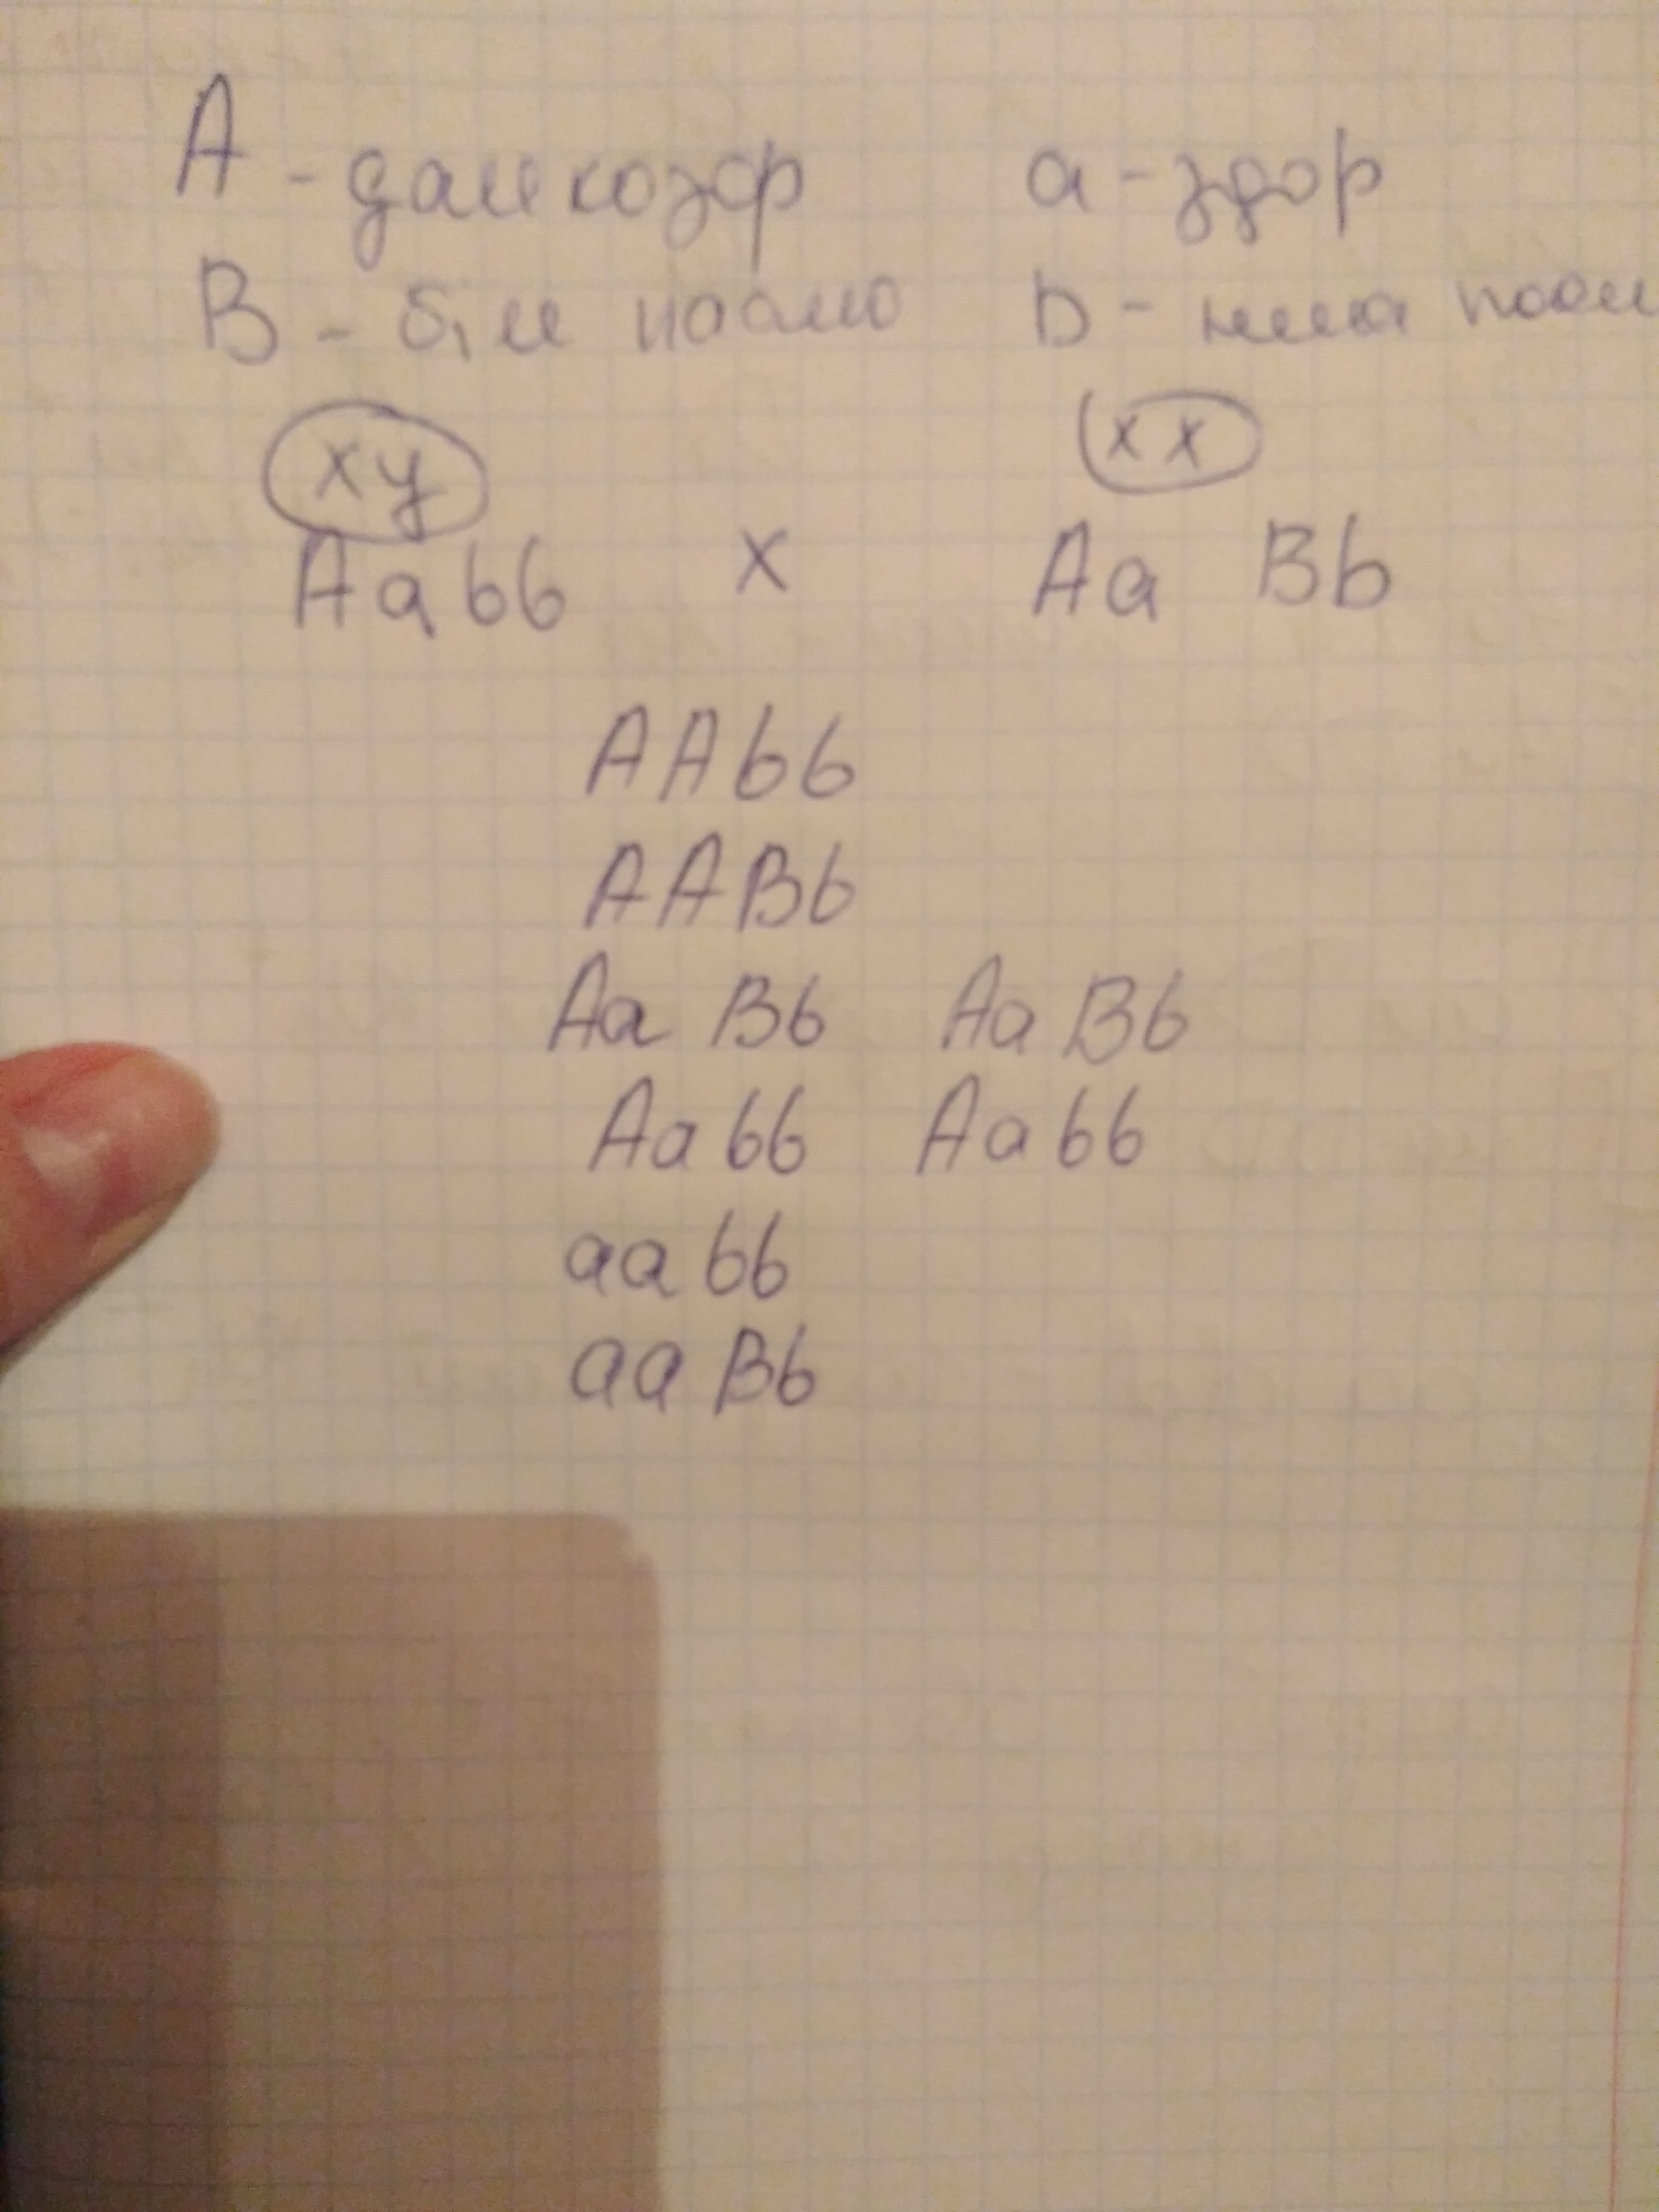 A - далекозор а - здор
B - біл пасмо b - нема пасм
xy xx
Aabb x Aa Bb
AAbb
AABb
Aa Bb Aa Bb
Aa bb Aa bb
aa bb
aa Bb